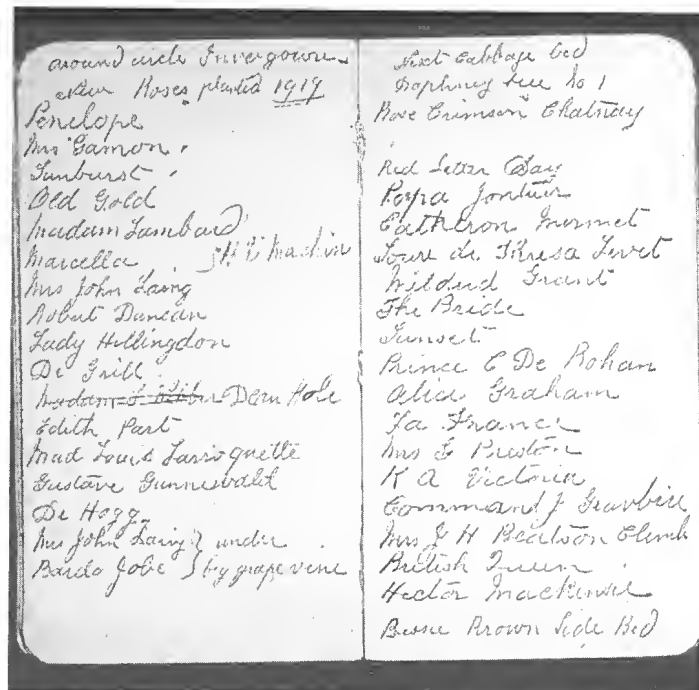 around circle Invergowrie
New Roses planted 1919
Penelope
Mrs Gamon
Sunburst
Old Gold
Madam Lambard
Marcella
Machin
Mrs John Laing
Robert Duncan
Lady Hillingdon
De Grill
Madam Dean Hole
Edith Part
Mad Louis
Gustave Grunnewaldt
De Hogg
Mrs John Laing } under
Bardo Jobe } by grape vine
Next Cabbage bed
Daphney tree No 1
Rose Crimson Chatnay
Red Letter Day
Papa Jontier
Catheron Mermet
Souve de Thresa Levet
Mildred Grant
The Bride
Sunset
Prince C De Rohan
Alice Graham
La France
Mrs Preston
K A Victoria
Command J
Mrs J H Beatson Climb
British Queen
Hector Mackenzie
Bessie Brown Side Bed